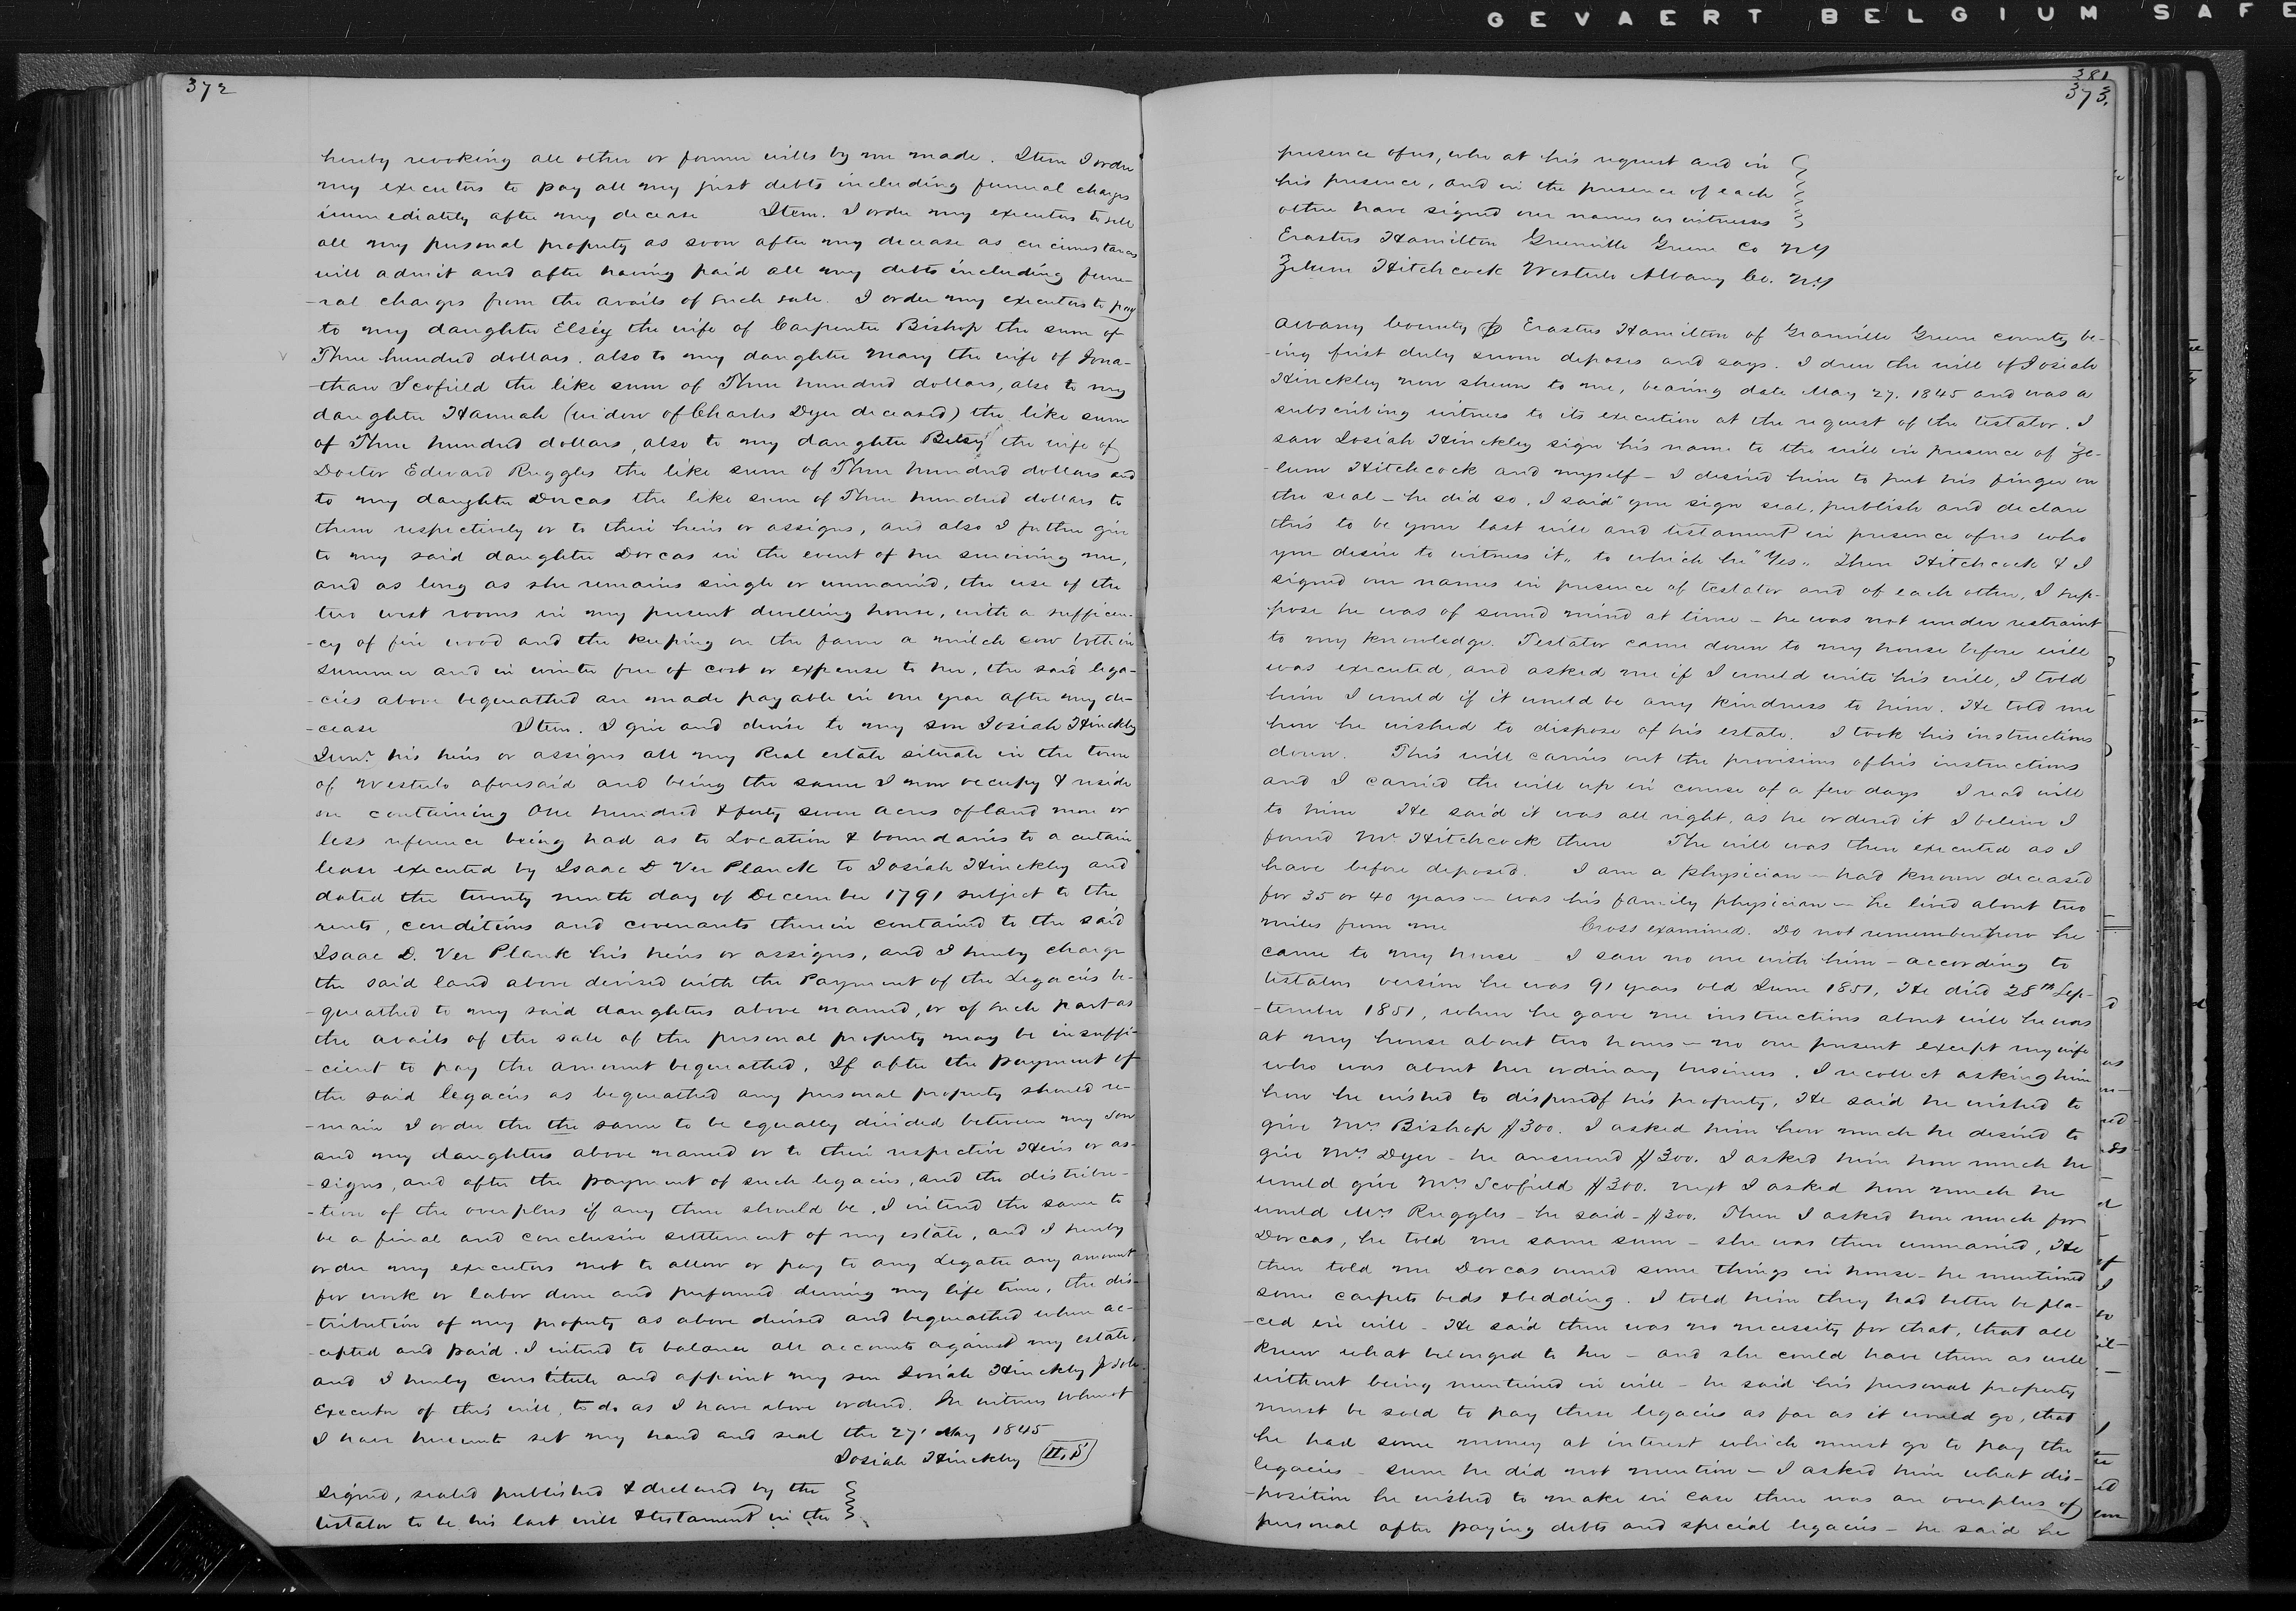 GEVAERT BELGIUM SAFE
372
hereby revoking all other or former wills by me made. Item I order
my executors to pay all my just debts including funeral charges
immediately after my decease Item. I order my executors to sell
all my personal property as soon after my decease as circumstances
will admit and after having paid all my debts including fune-
-ral charges from the avails of such sale. I order my executors to pay
to my daughter Elsey the wife of Carpenter Bishop the sum of
Three hundred dollars. also to my daughter Mary the wife of Jona-
-than Scofield the like sum of Three hundred dollars, also to my
daughter Hannah (widow of Charles Dyer deceased) the like sum
of Three hundred dollars, also to my daughter Betsy the wife of
Doctor Edward Ruggles the like sum of Three hundred dollars and
to my daughter Dorcas the like sum of Three hundred dollars to
them respectively or to their heirs or assigns, and also I further give
to my said daughter Dorcas in the event of her surviving me,
and as long as she remains single or unmarried, the use of the
two west rooms in my present dwelling house, with a sufficen-
-cy of fire wood and the keeping on the farm a milch cow both in
summer and in winter free of cost or expense to her, the said lega-
-cies above bequeathed are made payable in one year after my de-
-cease Item. I give and devise to my son Josiah Hinckley
Junr. his heirs or assigns all my Real estate situate in the town
of Westerlo aforesaid and being the same I now occupy & reside
on containing One hundred & forty seven acres of land more or
less reference being had as to Location & boundaries to a certain
lease executed by Isaac D Ver Planck to Josiah Hinckley and
dated the twenty ninth day of December 1791 subject to the
rents, conditions and covenants therein contained to the said
Isaac D. Ver Plank his heirs or assigns, and I hereby charge
the said land above devised with the Payment of the Legacies be-
-queathed to my said daughters above named, or of such part as
the avails of the sale of the personal property may be insuffi-
-cient to pay the amount bequeathed. If after the payment of
the said legacies as bequeathed any personal property should re-
-main I order the the same to be equally divided between my son
and my daughters above named or to their respective Heirs or as-
-signs, and after the payment of such legacies, and the distribu-
-tion of the overplus if any there should be. I intend the same to
be a final and conclusive settlement of my estate, and I hereby
order my executors not to allow or pay to any Legatee any amount
for work or labor done and performed during my life time, the dis-
-tribution of my property as above devised and bequeathed when ac-
-cepted and paid. I intend to balance all accounts against my estate,
and I hereby constitute and appoint my son Josiah Hinckley Jr sole
Executor of this will, to do as I have above ordered. In witness whereof
I have hereunto set my hand and seal the 27' May 1845
Josiah Hinckley
Signed, sealed published & declared by the
testator to be his last will & testament in the
381
373.
presence of us, who at his request and in
his presence, and in the presence of each
other have signed our names as witnesses
Erastus Hamilton Greenville Greene Co NY
Zelum Hitchcock Westerlo Albany Co. N.Y
Albany County Erastus Hamilton of Granville Greene county be-
-ing first duly sworn deposes and says. I drew the will of Josiah
Hinckley now shewn to me, bearing date May 27. 1845 and was a
subscribing witness to its execution at the request of the testator. I
saw Josiah Hinckley sign his name to the will in presence of Ze-
-lum Hitchcock and myself - I desired him to put his finger on
the seal - he did so. I said "you sign seal, publish and declare
this to be your last will and testament in presence of us who
you desire to witness it" to which he "Yes" Then Hitchcock & I
signed our names in presence of testator and of each other, I sup-
pose he was of sound mind at time - he was not under restraint
to my knowledge. Testator came down to my house before will
was executed, and asked me if I would write his will, I told
him I would if it would be any kindness to him. He told me
how he wished to dispose of his estate. I took his instructions
down. This will carries out the provisions of his instructions
and I carried the will up in course of a few days I read will
to him He said it was all right, as he ordered it I believe I
found Mr. Hitchcock there The will was then executed as I
have before deposed. I am a physician - had known deceased
for 35 or 40 years - was his family physician - he lived about two
miles from me Cross examined. Do not remember how he
came to my house - I saw no one with him - according to
testators version he was 91 years old June 1851, He died 28th Sep-
-tember 1851, when he gave me instructions about will he was
at my house about two hours - no one present except my wife
who was about her ordinary business. I recollect asking him
how he wished to dispose of his property, He said he wished to
give Mrs. Bishop $300. I asked him how much he desired to
give Mrs Dyer - he answered $300. I asked him how much he
would give Mrs Scofield $300. next I asked how much he
would Mrs Ruggles - he said - $300. Then I asked how much for
Dorcas, he told me same sum - she was then unmarried, He
then told me Dorcas owned some things in house - he mentioned
some carpets beds & bedding. I told him they had better be pla-
-ced in will - He said there was no necessity for that, that all
knew what belonged to her - and she could have them as well
without being mentioned in will - he said his personal property
must be sold to pay these legacies as far as it would go, that
he had some money at interest which must go to pay the
legacies - sum he did not mention - I asked him what dis-
-position he wished to make in case there was an overplus of
personal after paying debts and special legacies - he said he